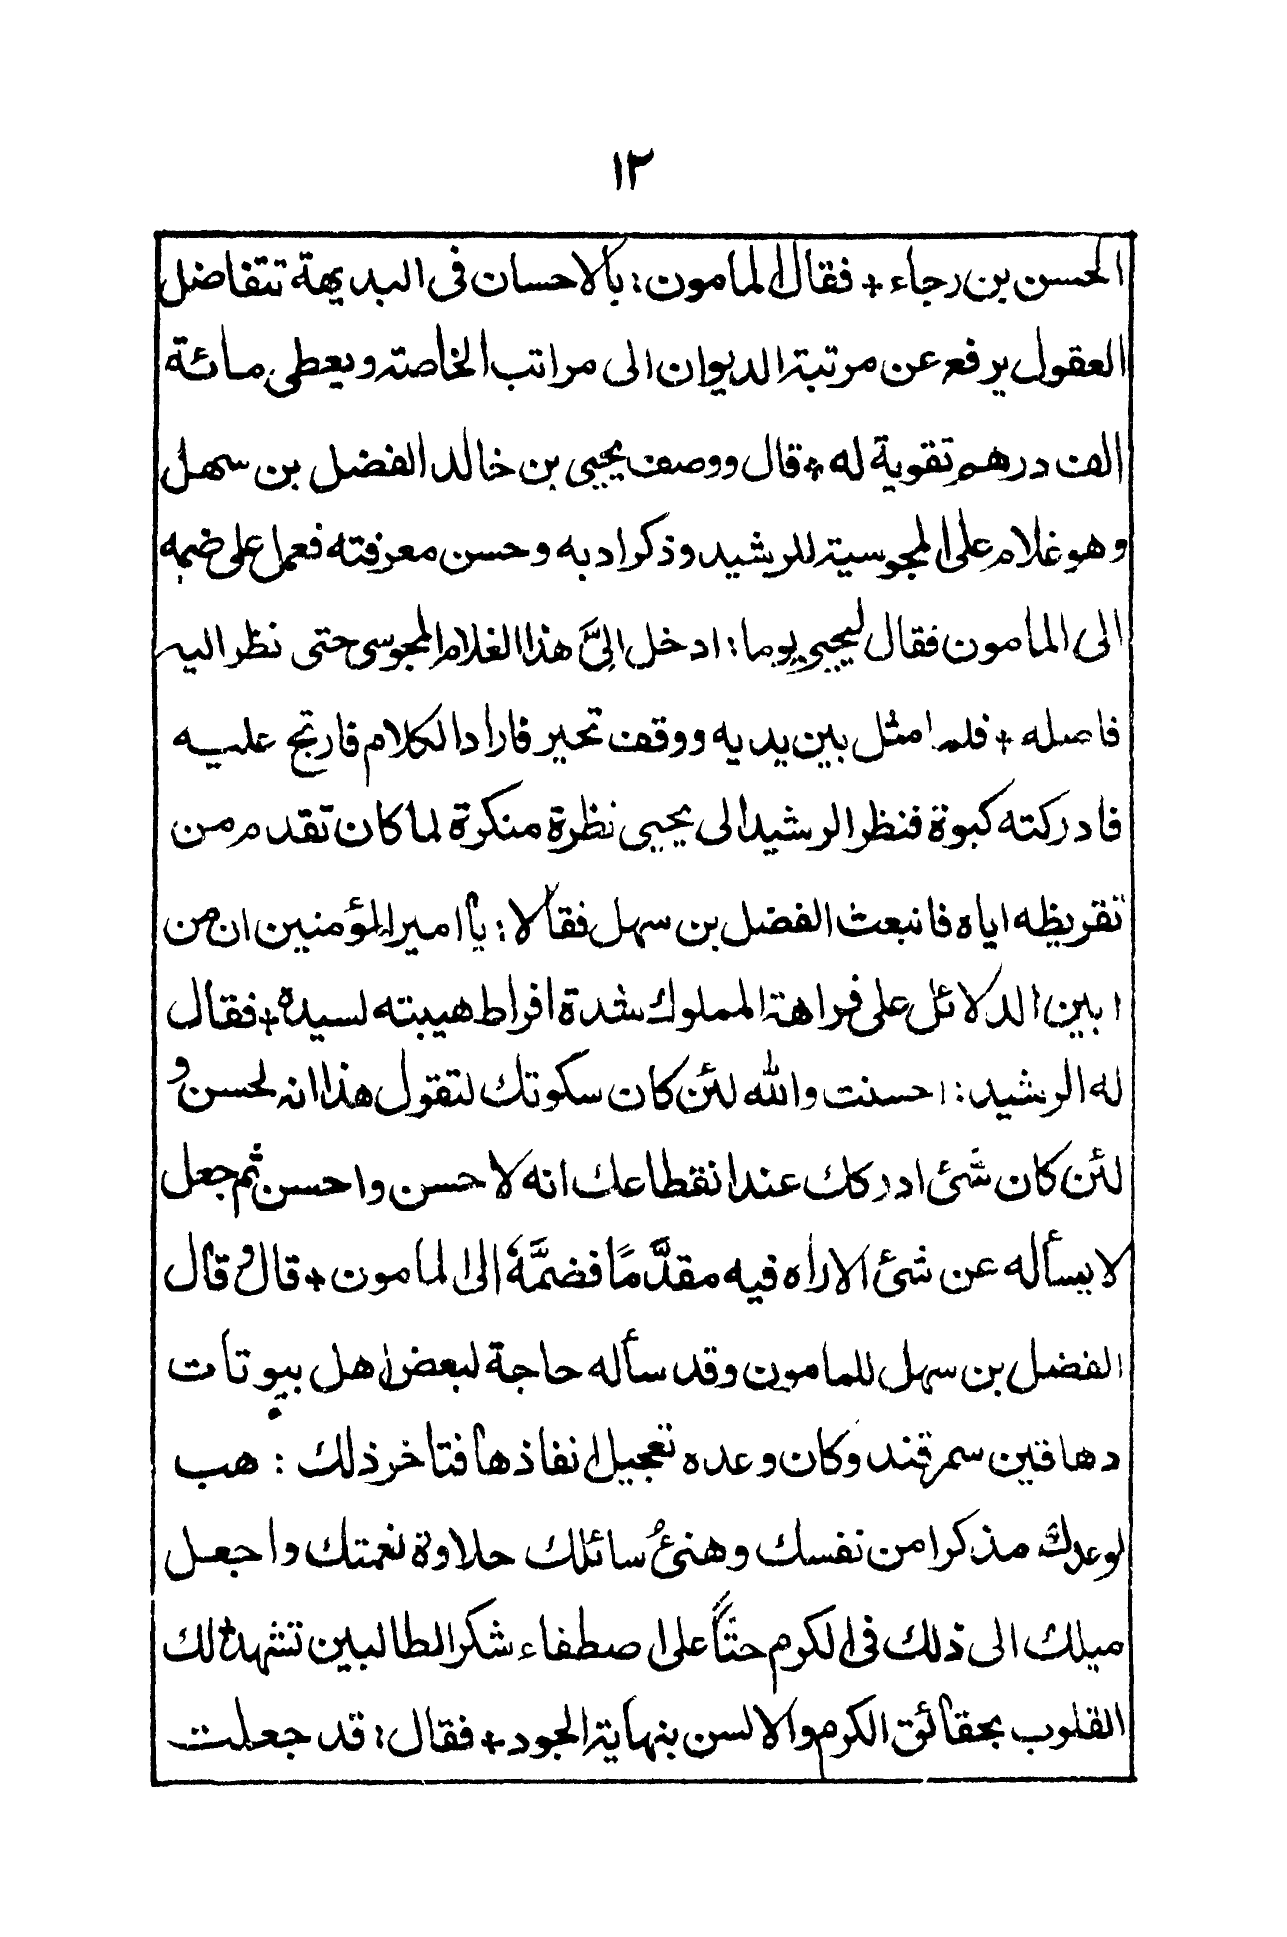 ١٢
الحسن بن رجاء + فقال المامون: بالاحسان فى البديهة تتفاضل
العقول يرفع عن مرتبة الديوان الى مراتب الخاصة ويعطى مائة
الف درهم تقوية له + قال ووصف يحيى بن خالد الفضل بن سهل
وهو غلام على المجوسية للرشيد وذكر ادبه وحسن معرفته فعمل على ضمه
الى المامون فقال ليحيى يوما: ادخل الىَّ هذا الغلام المجوسى حتى نظر اليه
فاصله + فلما مثل بين يديه ووقف تحير فاراد الكلام فارتج عليه
فادركته كبوة فنظر الرشيد الى يحيى نظرة منكرة لما كان تقدم من
تقريظه اياه فانبعث الفضل بن سهل فقالا: يا امير المؤمنين ان من
ابين الدلائل على فراهة المملوك شدة افراط هيبته لسيده + فقال
له الرشيد: احسنت والله لئن كان سكوتك لتقول هذا انه لحسن و
لئن كان شئ ادركك عند انقطاعك انه لاحسن واحسن ثم جعل
لا يسأله عن شئ الا راه فيه مقدَّمًا فضمَّهُ الى المامون + قال وقال
الفضل بن سهل للمامون وقد سأله حاجة لبعض اهل بيوتات
دهاقين سمرقند وكان وعده تعجيل انفاذها فتاخر ذلك: هب
لوعدك مذكرا من نفسك وهنئ سائلك حلاوة نعمتك واجعل
ميلك الى ذلك فى الكرم حثًّا على اصطفاء شكر الطالبين تشهد لك
القلوب بحقائق الكرم والالسن بنهاية الجود + فقال: قد جعلت